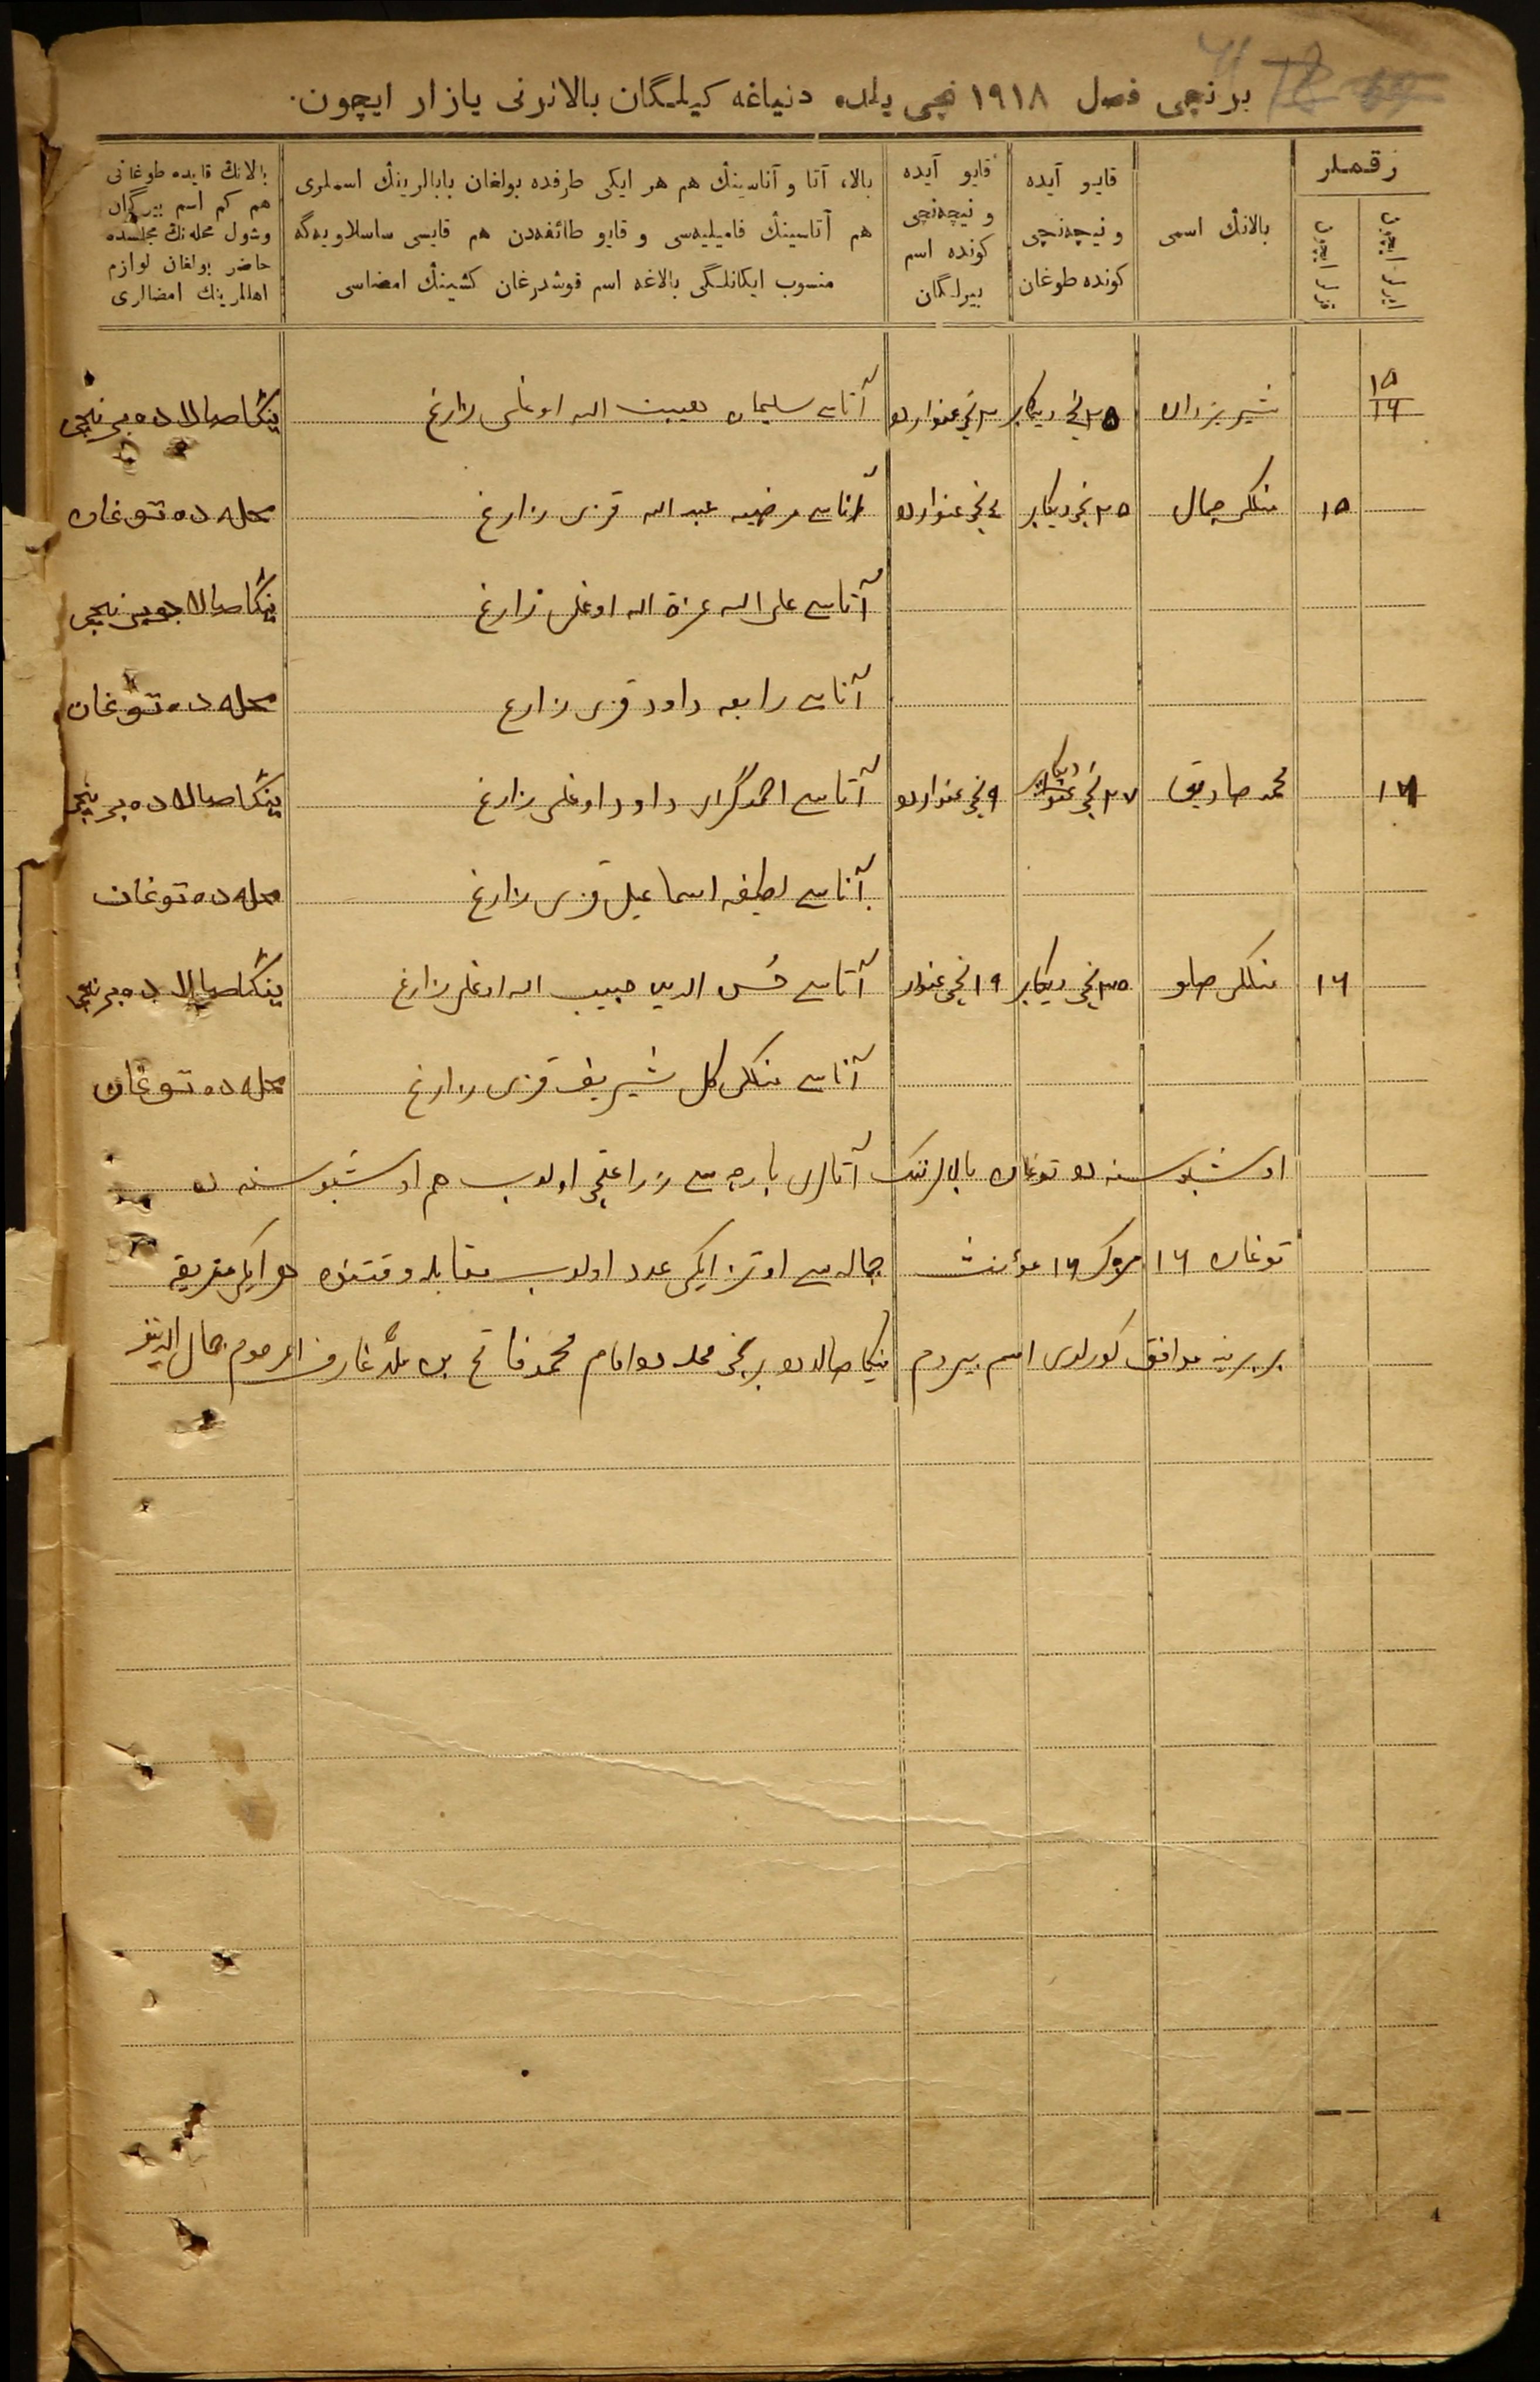 برنچی فصل ١٩١٨ نچی یلده دنیاغه کیلگان بالالرنی یازار ایچون.
رقملر
بالانڭ اسمی
قایو آیده و نیچه‌نچی کونده طوغان
قایو آیده و نیچه‌نچی کونده اسم بیرلگان
بالا، آتا و آناسینڭ هم هر ایکی طرفده بولغان بابالرینڭ اسملری
هم آتاسینڭ فامیلیه‌سی و قایو طائفه‌دن هم قایسی ساسلاویه‌گه
منسوب ایکانلگی بالاغه اسم قوشدرغان کشینڭ امضاسی
بالانڭ قایده طوغانی
هم کم اسم بیرگان
وشول محله‌نڭ مجلسده
حاضر بولغان لوازم
اهللرینڭ امضالری
١٥
١٦
٢٥ نچی دیکابر ٢ نچی غنوارده آتاسی سلیمان هیبت الله اوغلی زارغ ینگا صالاده برنچی
١٥ منکلی جمال ٢٥ نچی دیکابر ٤ نچی غنوارده آناسی مرضیه عبد الله قزی زارغ محله ده توغان
آتاسی علی الله عزة الله اوغلی زارغ ینگا صالاده برنچی
آناسی رابعه داود قزی زارع محله ده توغان
١٦ محمد صادیق ٢٧ نچی دیکابر ٩ نچی غنوارده آتاسی احمدگرای داود اوغلی زارغ ینگا صالاده برنچی
آناسی لطیفه اسماعیل قزی زارغ محله ده توغان
١٦ منکلی صلو ٢٥ نچی دیکابر ١٩ نچی غنوار آتاسی شمس الدین حبیب الله اوغلی زارغ ینگا صالاده برنچی
آناسی منکلی کل شریف قزی زارغ محله ده توغان
اوشبو سنه ده توغان بالالرننڭ آتالری بارچه سی زراعتچی اولوب هم اوشبو سنه ده
توغان ١٦ مذکر ١٦ مؤنث جمله سی اوتز ایکی عدد اولوب مقابله وقتنده هر ایکی
بر برینه موافق کورلدی اسم بیردم ینکا صالاده برنچی محله ده امام محمد فاتح بن ملا عارف المرحوم جمال الدینف
4